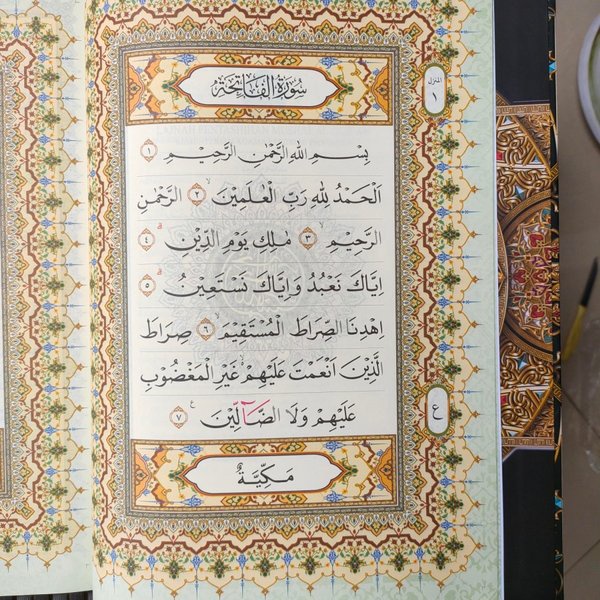 سُوْرَةُ الْفَاتِحَةِ
المنزل
١
بِسْمِ اللهِ الرَّحْمٰنِ الرَّحِيْمِ ١
اَلْحَمْدُ لِلهِ رَبِّ الْعٰلَمِيْنَۙ ٢ الرَّحْمٰنِ
الرَّحِيْمِۙ ٣ مٰلِكِ يَوْمِ الدِّيْنِۗ ٤
اِيَّاكَ نَعْبُدُ وَاِيَّاكَ نَسْتَعِيْنُۗ ٥
اِهْدِنَا الصِّرَاطَ الْمُسْتَقِيْمَۙ ٦ صِرَاطَ
الَّذِيْنَ اَنْعَمْتَ عَلَيْهِمْ ەۙ غَيْرِ الْمَغْضُوْبِ
ع
عَلَيْهِمْ وَلَا الضَّاۤلِّيْنَ ࣖ ٧
مَكِّيَّةٌ